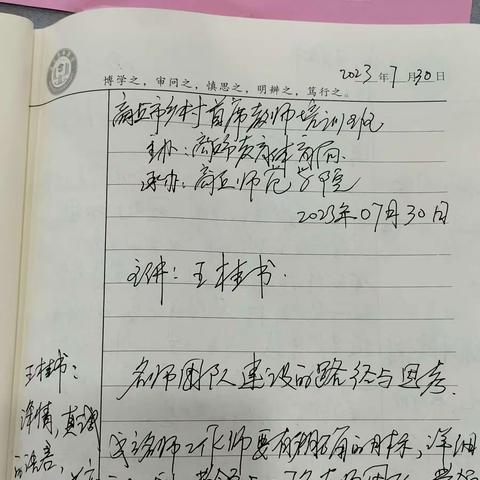 2023年7月30日
博学之，审问之，慎思之，明辨之，笃行之。
商丘市乡村首席教师培训班
主办：商丘市教育体育局
承办：商丘师范学院
2023年07月30日
主讲：王桂书.
名师团队建设的路径与思考.
王桂书：
详情，真诚
的语言，
名师工作师要有明确的目标，详细